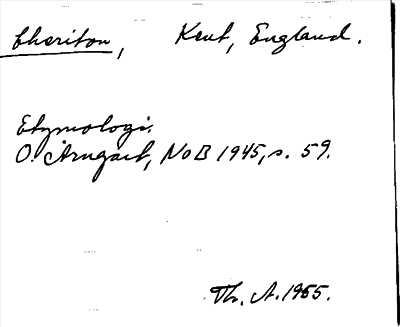 Cheriton, Kent, England.
Etymologi.
O. Arngart, NoB 1945, s. 59.
Th. A. 1955.